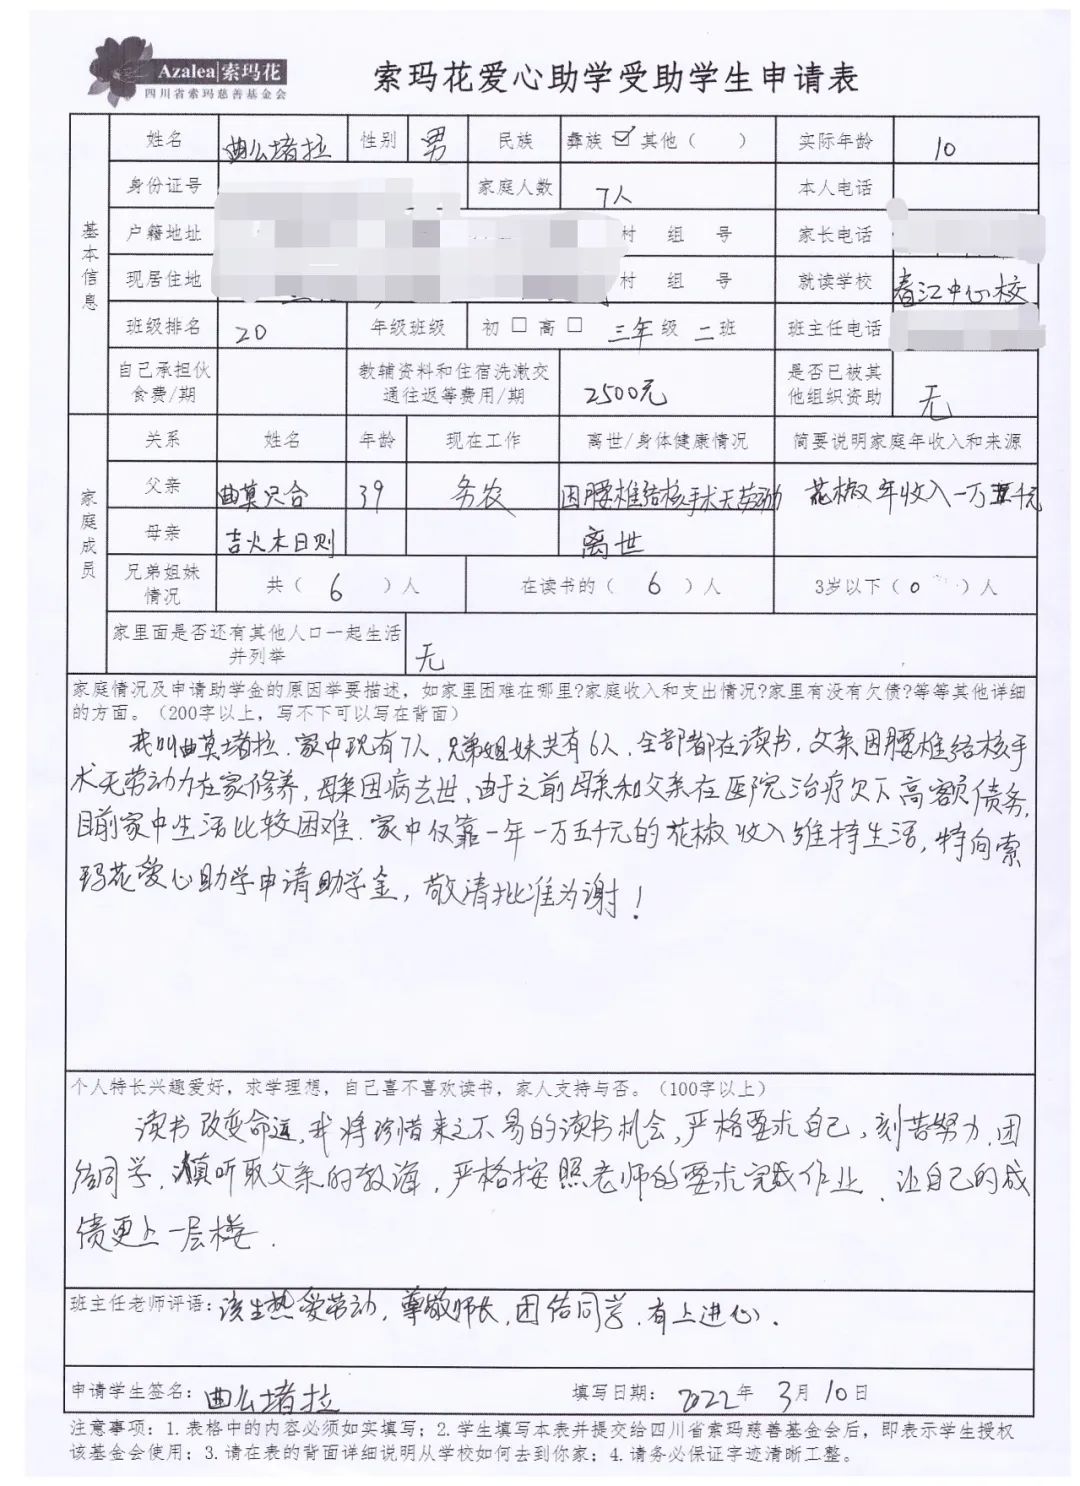 Azalea|索玛花
四川省索玛慈善基金会
索玛花爱心助学受助学生申请表
基本信息
姓名 曲么堵拉 性别 男 民族 彝族 ☑ 其他（ ） 实际年龄 10
身份证号 家庭人数 7人 本人电话
户籍地址 村 组 号 家长电话
现居住地 村 组 号 就读学校 春江中心校
班级排名 20 年级班级 初 □ 高 □ 三年级 二班 班主任电话
自己承担伙食费/期 教辅资料和住宿洗漱交通往返等费用/期 2500元 是否已被其他组织资助 无
家庭成员
关系 姓名 年龄 现在工作 离世/身体健康情况 简要说明家庭年收入和来源
父亲 曲莫只合 39 务农 因腰椎结核手术无劳动 花椒年收入一万五千元
母亲 吉火木日则 离世
兄弟姐妹情况 共（6）人 在读书的（6）人 3岁以下（0）人
家里面是否还有其他人口一起生活并列举 无
家庭情况及申请助学金的原因举要描述，如家里困难在哪里?家庭收入和支出情况?家里有没有欠债?等等其他详细
的方面。（200字以上，写不下可以写在背面）
我叫曲莫堵拉．家中现有7人，兄弟姐妹共有6人．全部都在读书，父亲因腰椎结核手
术无劳动力在家修养，母亲因病去世，由于之前母亲和父亲在医院治疗欠下高额债务，
目前家中生活比较困难．家中仅靠一年一万五千元的花椒收入维持生活，特向索
玛花爱心助学申请助学金，敬请批准为谢！
个人特长兴趣爱好，求学理想，自己喜不喜欢读书，家人支持与否。（100字以上）
读书改变命运，我将珍惜来之不易的读书机会，严格要求自己，刻苦努力．团
结同学．听取父亲的教海，严格按照老师的要求完成作业．让自己的成
债更上一层楼．
班主任老师评语：该生热爱劳动，尊敬师长，团结同学．有上进心．
申请学生签名：曲么堵拉 填写日期：2022年 3月10日
注意事项：1.表格中的内容必须如实填写；2.学生填写本表并提交给四川省索玛慈善基金会后，即表示学生授权
该基金会使用；3.请在表的背面详细说明从学校如何去到你家；4.请务必保证字迹清晰工整。